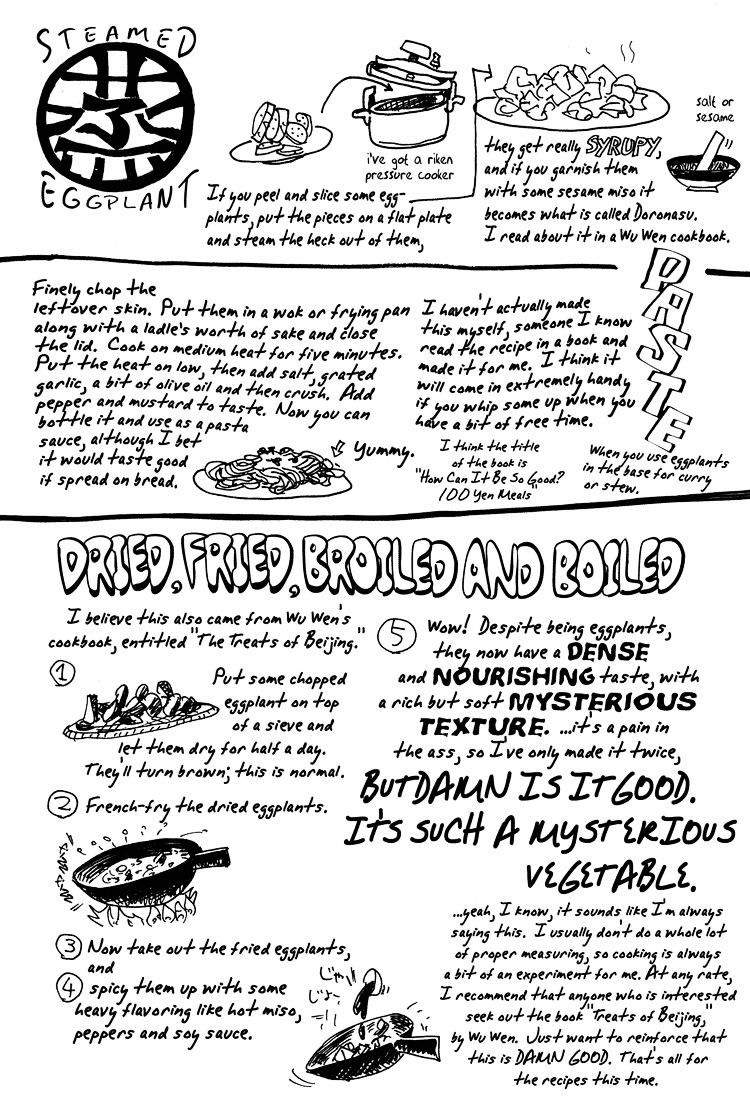 STEAMED
EGGPLANT
i've got a riken
pressure cooker
If you peel and slice some egg-
plants, put the pieces on a flat plate
and steam the heck out of them,
they get really SYRUPY,
and if you garnish them
with some sesame miso it
becomes what is called Doronasu.
I read about it in a Wu Wen cookbook.
salt or
sesame
PASTE
Finely chop the
leftover skin. Put them in a wok or frying pan
along with a ladle's worth of sake and close
the lid. Cook on medium heat for five minutes.
Put the heat on low, then add salt, grated
garlic, a bit of olive oil and then crush. Add
pepper and mustard to taste. Now you can
bottle it and use as a pasta
sauce, although I bet
it would taste good
if spread on bread.
Yummy.
I haven't actually made
this myself, someone I know
read the recipe in a book and
made it for me. I think it
will come in extremely handy
if you whip some up when you
have a bit of free time.
I think the title
of the book is
"How Can It Be So Good?
100 Yen Meals"
When you use eggplants
in the base for curry
or stew.
DRIED, FRIED, BROILED AND BOILED
I believe this also came from Wu Wen's
cookbook, entitled "The Treats of Beijing."
1
Put some chopped
eggplant on top
of a sieve and
let them dry for half a day.
They'll turn brown; this is normal.
2 French-fry the dried eggplants.
3 Now take out the fried eggplants,
and
4 spicy them up with some
heavy flavoring like hot miso,
peppers and soy sauce.
じゃっ
じょっ
5 Wow! Despite being eggplants,
they now have a DENSE
and NOURISHING taste, with
a rich but soft MYSTERIOUS
TEXTURE. ...it's a pain in
the ass, so I've only made it twice,
BUT DAMN IS IT GOOD.
IT'S SUCH A MYSTERIOUS
VEGETABLE.
...yeah, I know, it sounds like I'm always
saying this. I usually don't do a whole lot
of proper measuring, so cooking is always
a bit of an experiment for me. At any rate,
I recommend that anyone who is interested
seek out the book "Treats of Beijing,"
by Wu Wen. Just want to reinforce that
this is DAMN GOOD. That's all for
the recipes this time.